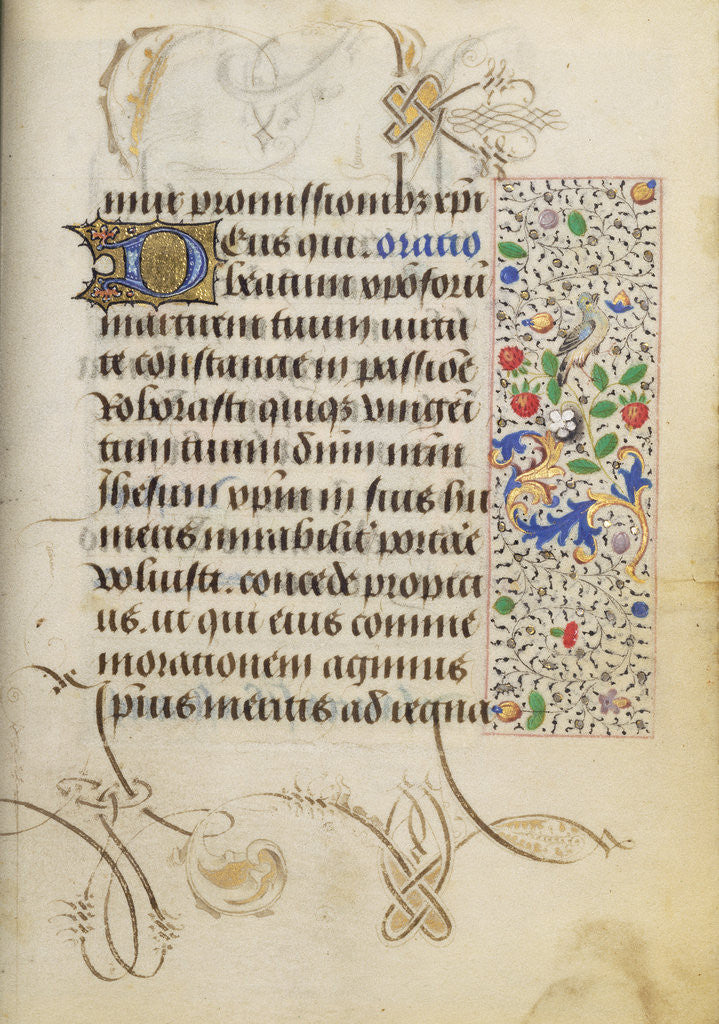 mur promissionibz xpi
Deus qui. oratio
beatum xpoforū
martirem tuum uirtu
te constancie in passiōe
roborasti quiqz vnigeī
tum tuum dn̄m nr̄m
Jhesum xp̄m in suis hu
meris mirabilit̉ portar̉e
voluisti. concede propici
us. ut qui eius comme
morationem agimus
ip̄ius meritis ad regna